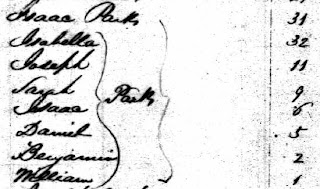 Isaac Park 31
Isabella 32
Joseph 11
Sarah 9
Isaac Park 6
Daniel 5
Benjamin 2
William 1